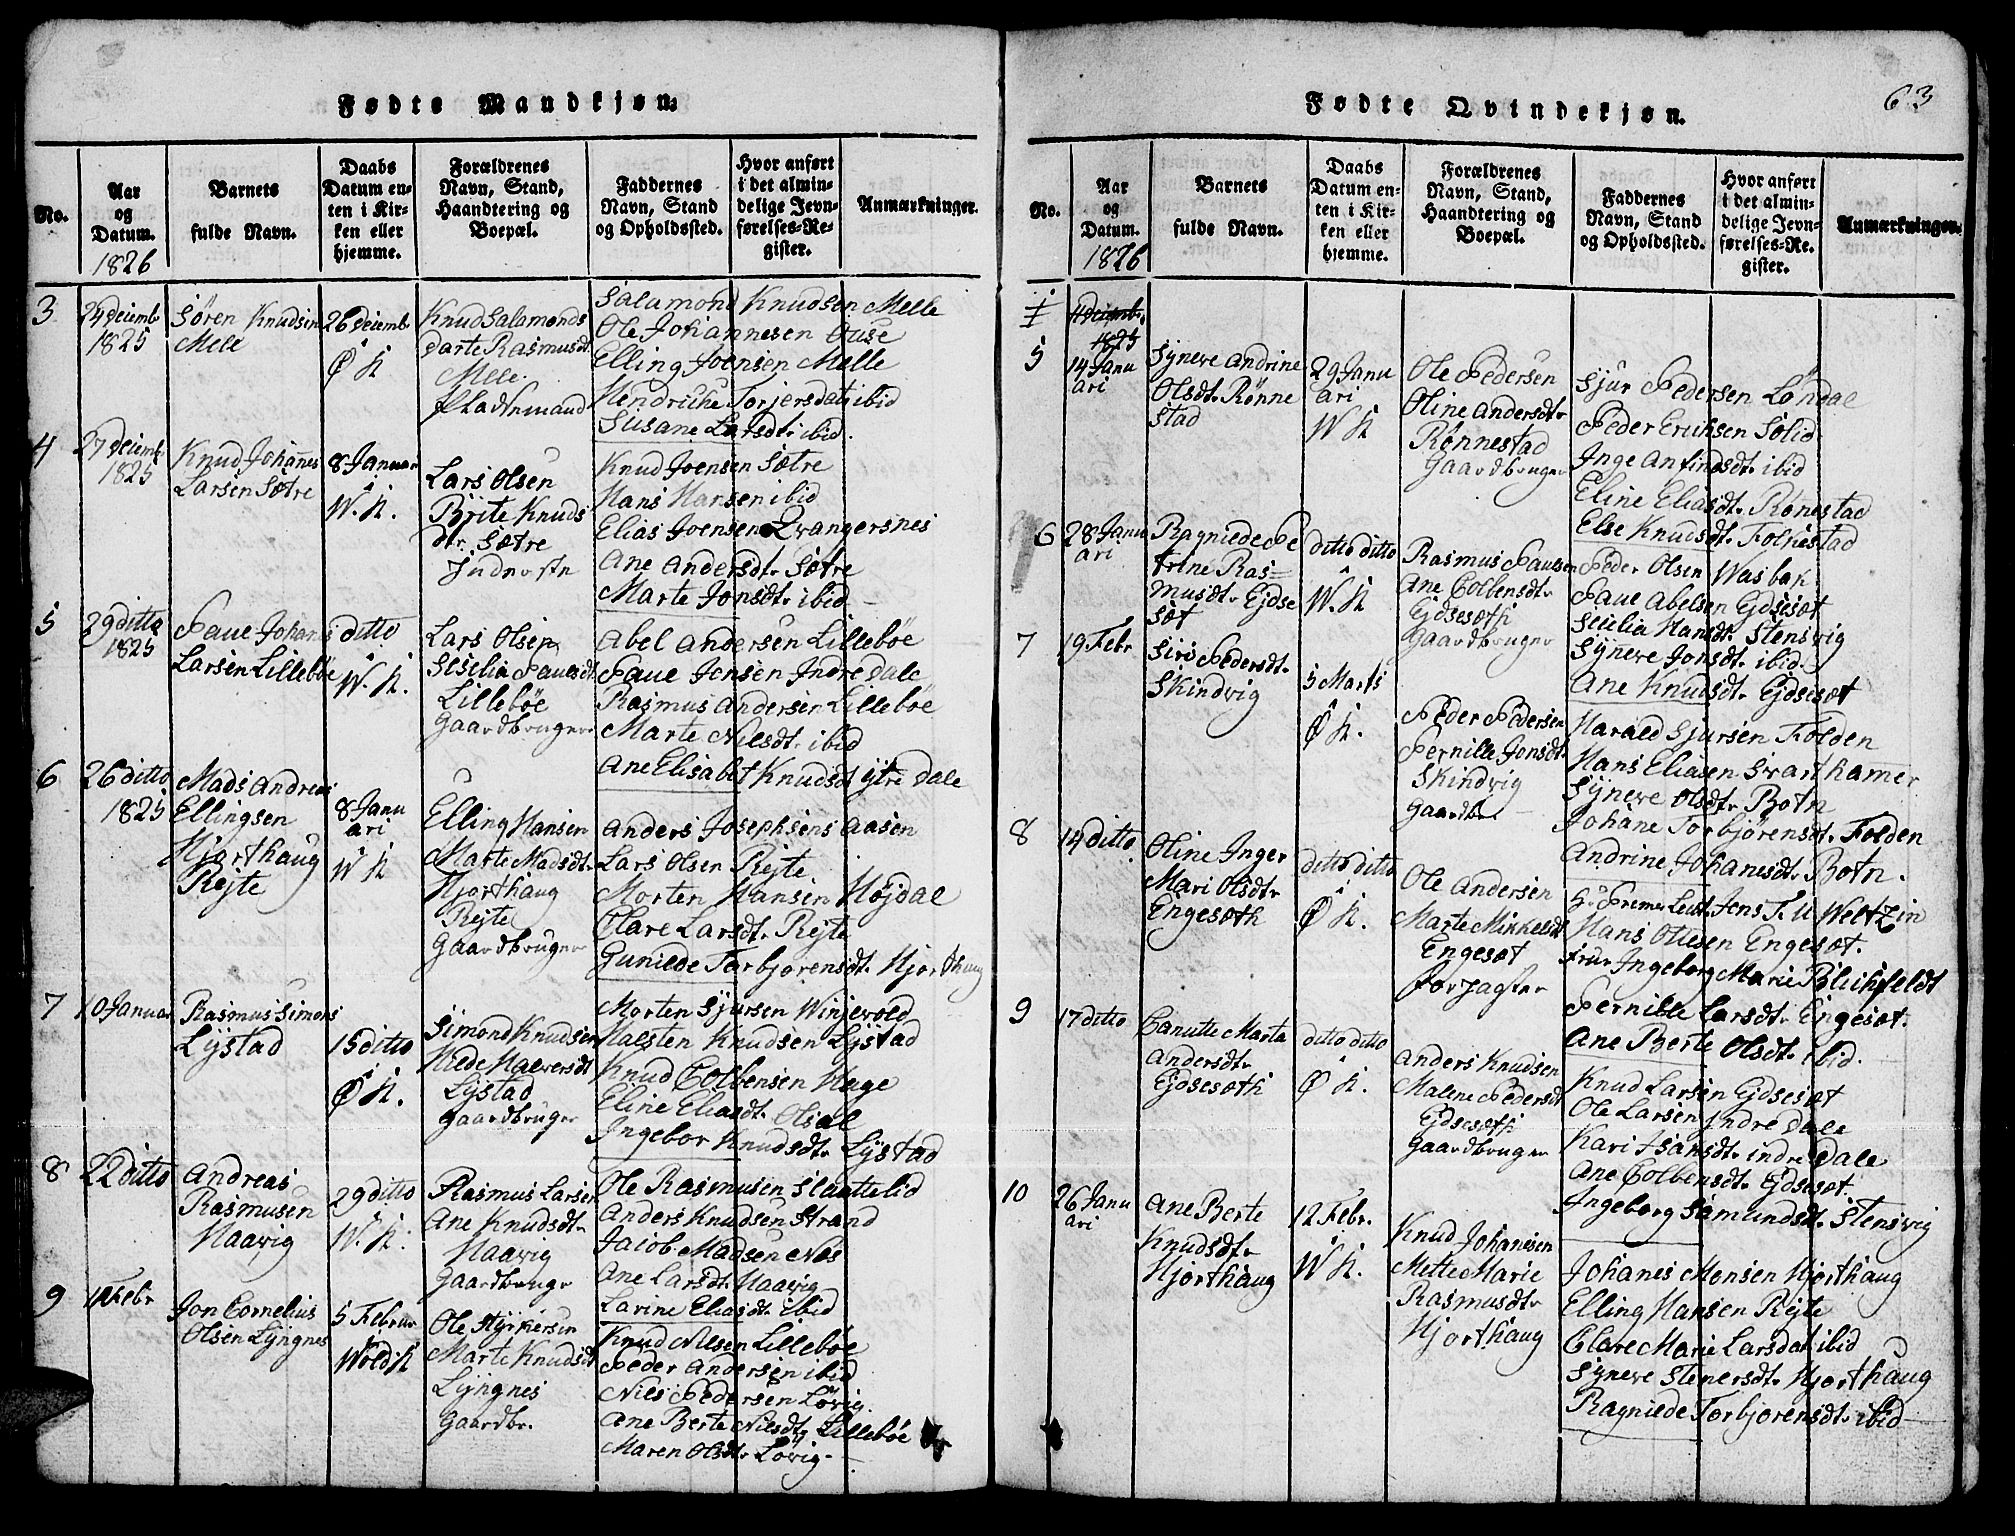 Fødte Mandkjøn.
No.
Aar
og
Datum.
1826
Barnets
fulde Navn.
Daabs
Datum en-
ten i Kir-
ken eller
hjemme.
Forældrenes
Navn, Stand,
Haandtering og
Boepæl.
Faddernes
Navn, Stand
og Opholdssted.
Hvor anført
i det almin-
delige Jevn-
førelses-Re-
gister.
Anmærkninger.
3
24 Decemb
1825
Søren Knudsen
Mele
26 Decemb
Ø K
Knud Salamonds
Dorte Rasmusdt
Mele
Pladsmand
Salamond Knudsen Melle
Ole Johannesen Ouse
Elling Joensen Melle
Hendriche Torjersdat ibid
Susane Larsdt. ibid.
4
27 Decemb
1825
Knud Johannes
Larsen Sætre
8 Januar
W. K.
Lars Olsen
Brite Knuds
dtr Sætre
Knud Joensen Sætre
Hans Hansen ibid
Elias Joensen Qvangersnes
Ane Andersdt. Sætre
Marte Jonsdt. ibid
5
29 ditto
1825
Paue Johans
Larsen Lillebøe
ditto
W. K.
Lars Olsen
Seselia Paulsdt
Lillebøe
Gaardbruger
Abel Andersen Lillebøe
Paue Jensen Indre Dale
Rasmus Andersen Lillebøe
Marte Nilsdt. ibid
Ane Elisabet Knudsdt ytre Dale
6
26 ditto
1825
Mads Andreas
Ellingsen
Hjorthaug
Rejte
8 Janu
ari
W K
Elling Hansen
Marte Madsdt.
Hjorthaug
Rejte
Gaardbruger
Anders Josephsens Aasen
Lars Olsen Rejte
Morten Hansen Højdal
Clare Larsdt. Rejte
Gunilde Torbjorensdt. Hjorthaug
7
10 Januar
Rasmus Simons
Lystad
15 ditto
Ø K.
Simond Knudsen
Hilde Halversdt
Lystad
Gaardbruger
Morten Sjursen Winjevold
Halsten Knudsen Lystad
Knud Colbensen Hage
Eline Eliasdt. Olsøl
Ingebor Knudsdt. Lystad
8
22 ditto
Andreas
Rasmusen
Haavig
29 ditto
W. K.
Rasmus Larsen
Ane Knudsdt.
Haavig
Gaardbruger
Ole Rasmusen Slaattelid
Anders Knudsen Strand
Jacob Madsen Næs
Ane Larsdt. Haavig
Larine Eliasdt. ibid
9
1 Febr
Jon Cornelius
Olsen Lyngnes
5 Februar
Wold K
Ole Styrkersen
Marte Knudsdt
Lyngnes
Gaardbr.
Knud Nilsen Lillebøe
Peder Andersen ibid
Nils Pedersen Løvig.
Ane Berte Nilsdt. Lillebøe
Maren Olsdt. Løvig
Fødte Qvindekjøn.
63
No.
Aar
og
Datum.
1826
Barnets
fulde Navn.
Daabs
Datum en-
ten i Kir-
ken eller
hjemme.
Forældrenes
Navn, Stand,
Haandtering og
Boepæl.
Faddernes
Navn, Stand
og Opholdssted.
Hvor anført
i det almin-
delige Jevn-
førelses-Re-
gister.
Anmærkninger.
1825
5
14 Janu
ari
Syneve Andrine
Olsdt. Rønne
stad
29 Janu
ari
W K
Ole Pedersen
Oline Andersdt.
Rønnestad
Gaardbruger
Sjur Pedersen Løndal
Peder Erichsen Solid
Inge Anfindsdt. ibid
Eline Eliasdt. Rønestad
Else Knudsdt. Folkestad
6
28 Janu
ari
Ragnilde Pe
trine Ras=
musdt. Ejdse
sæt
ditto ditto
W. K
Rasmus Paulsen
Ane Colbensdt.
Ejdsesæth
Gaardbruger
Peder Olsen Wasbak
Paue Abelsen Ejdsesæt
Seselia Hansdt. Stensvig
Synere Jonsdt. ibid.
Ane Knudsdt. Ejdsesæt
7
19 Febr
Siri Pedersdt.
Skindvig
5 Marts
Ø K.
Peder Pedersen
Pernille Jonsdt.
Skindvig
Gaardbr
Harald Sjursen Folden
Hans Eliasen Swarthamer
Synere Olsdt. Botn
Johane Torbjørensdt. Folden
Andrine Johanesdt. Botn.
8
14 ditto
Oline Inger
Mari Olsdt.
Engesæth
ditto ditto
Ø K.
Ole Andersen
Marte Mikkelsdt
Engesæt
Forjagter
Hr Premier Leut. Jens T. U Weltzin
Hans Ollesen Engesæt.
Frue Ingeborg Marie Blichfeldt
Pernille Larsdt. Engesæt.
Ane Berte Olsdt. ibid.
9
17 ditto
Canutte Marta
Andersdt.
Ejdsesæth
ditto ditto
Ø K.
Anders Knudsen
Malene Pedersdt
Ejdsesæth
Gaardbruger
Knud Larsen Ejdsesæt
Ole Larsen Indre Dale
Kari Hansdt. indre Dale
Ane Colbensdt. Ejdsesæt.
Ingeborg Samundsdt. Stensvig
10
26 Janu
ari
Ane Berte
Knudsdt.
Hjorthaug
12 Febr.
W K.
Knud Johanesen
Mette Marie
Rasmusdt.
Hjorthaug
Johanes Monsen Hjorthaug
Elling Hansen Rejte
Clare Marie Larsdat ibid
Synere Stenersdt. Hjorthaug
Ragnilde Torbjorensdt. ibid